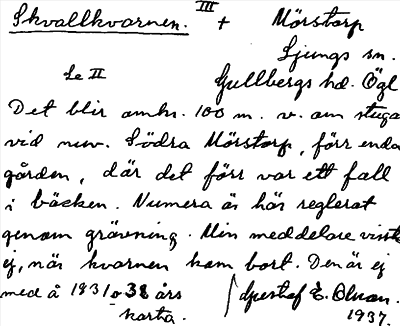 Skvallkvarnen. III + Mörstorp
Ljungs sn.
Se II Gullbergs hd. Ögl
Det blir omkr. 100 m. v. om stuga
vid nuv. Södra Mörstorp, förr enda
gården, där det förr var ett fall
i bäcken. Numera är här reglerat
genom grävning. Min meddelare visste
ej, när kvarnen kom bort. Den är ej
med å 1831 o 38 års Gustaf E. Olsson.
karta. 1937.